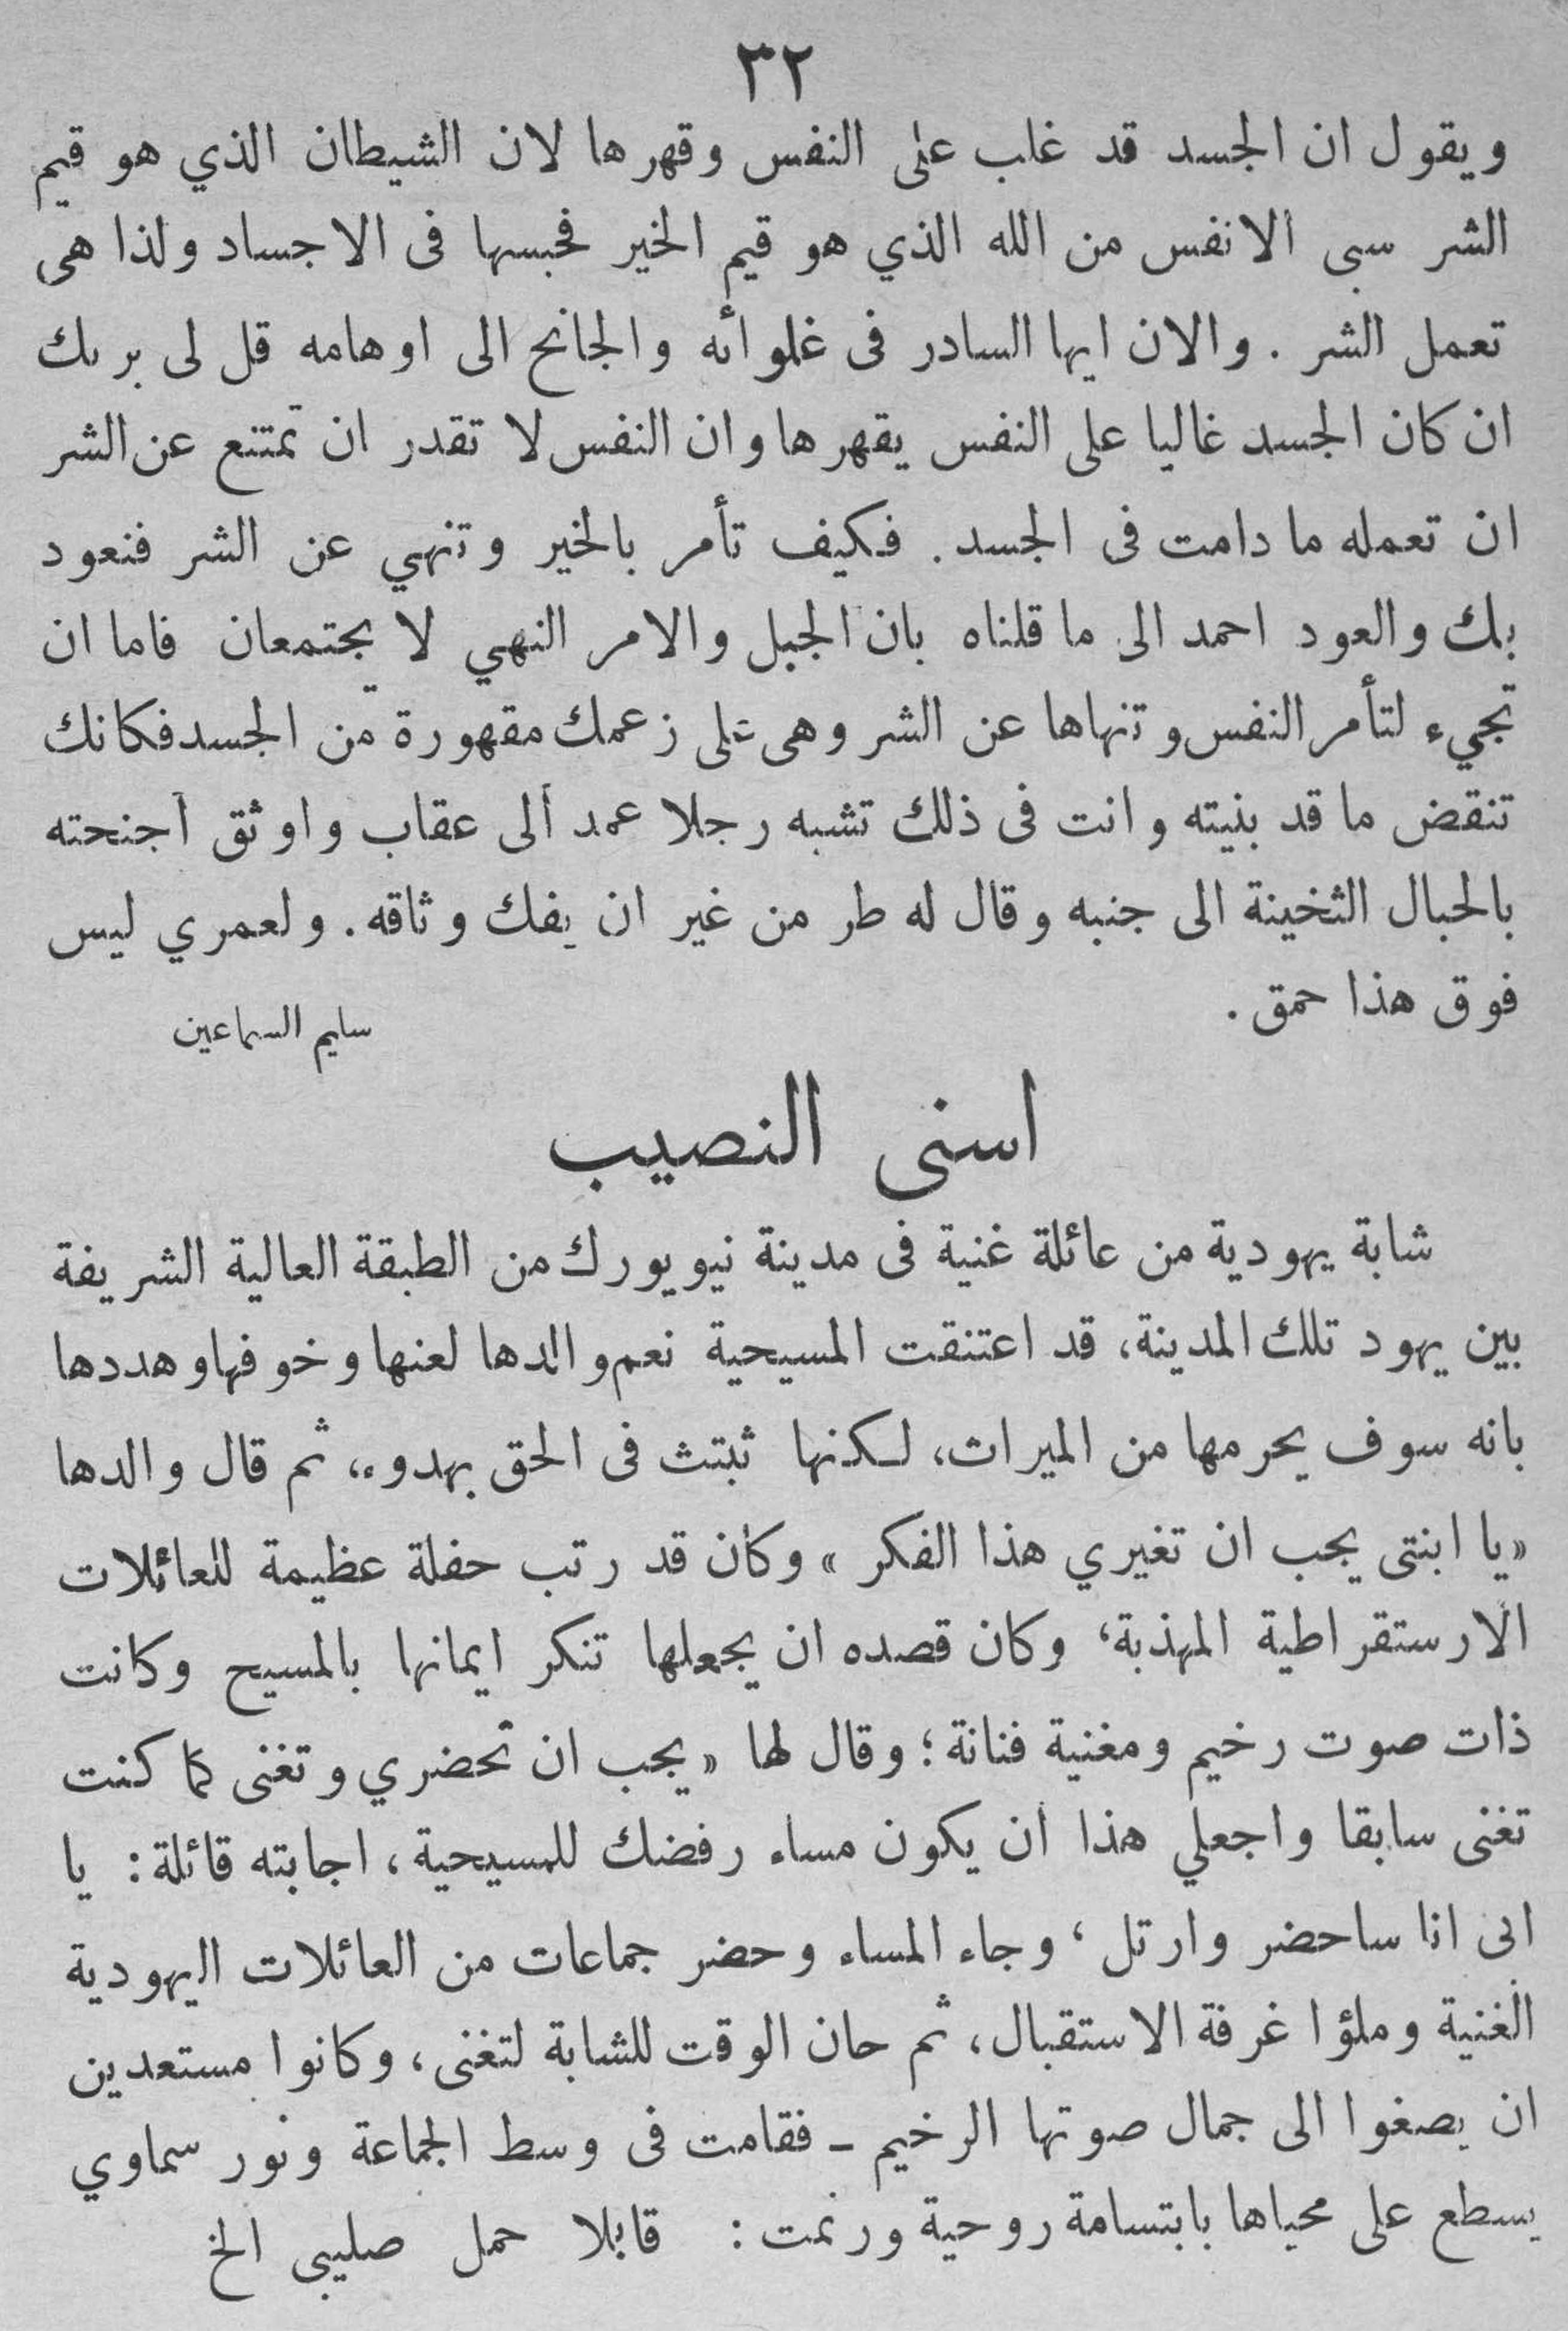 ٣٢
ويقول ان الجسد قد غلب على النفس وقهرها لان الشيطان الذي هو قيم
الشر سبى الانفس من الله الذي هو قيم الخير فحبسها فى الاجساد ولذا هى
تعمل الشر . والان ايها السادر فى غلوائه والجانح الى اوهامه قل لى بربك
ان كان الجسد غالبا على النفس يقهرها وان النفس لا تقدر ان تمتنع عن الشر
ان تعمله ما دامت فى الجسد . فكيف تأمر بالخير وتنهي عن الشر فنعود
بك والعود احمد الى ما قلناه بان الجبل والامر النهي لا يجتمعان فاما ان
تجيء لتأمر النفس وتنهاها عن الشر وهى على زعمك مقهورة من الجسد فكانك
تنقض ما قد بنيته وانت فى ذلك تشبه رجلا عمد الى عقاب واوثق اجنحته
بالحبال الثخينة الى جنبه وقال له طر من غير ان يفك وثاقه . ولعمري ليس
فوق هذا حمق .
سليم السماعين
اسنى النصيب
شابة يهودية من عائلة غنية فى مدينة نيويورك من الطبقة العالية الشريفة
بين يهود تلك المدينة، قد اعتنقت المسيحية نعم والدها لعنها وخوفها وهددها
بانه سوف يحرمها من الميراث، لكنها ثبتث فى الحق بهدوء، ثم قال والدها
« يا ابنتى يجب ان تغيري هذا الفكر » وكان قد رتب حفلة عظيمة للعائلات
الارستقراطية المهذبة، وكان قصده ان يجعلها تنكر ايمانها بالمسيح وكانت
ذات صوت رخيم ومغنية فنانة؛ وقال لها « يجب ان تحضري وتغنى كما كنت
تغنى سابقا واجعلي هذا ان يكون مساء رفضك للمسيحية، اجابته قائلة: يا
ابى انا ساحضر وارتل، وجاء المساء وحضر جماعات من العائلات اليهودية
الغنية وملؤا غرفة الاستقبال، ثم حان الوقت للشابة لتغنى، وكانوا مستعدين
ان يصغوا الى جمال صوتها الرخيم - فقامت فى وسط الجماعة ونور سماوي
يسطع على محياها بابتسامة روحية ورنمت : قابلا حمل صليبى الخ